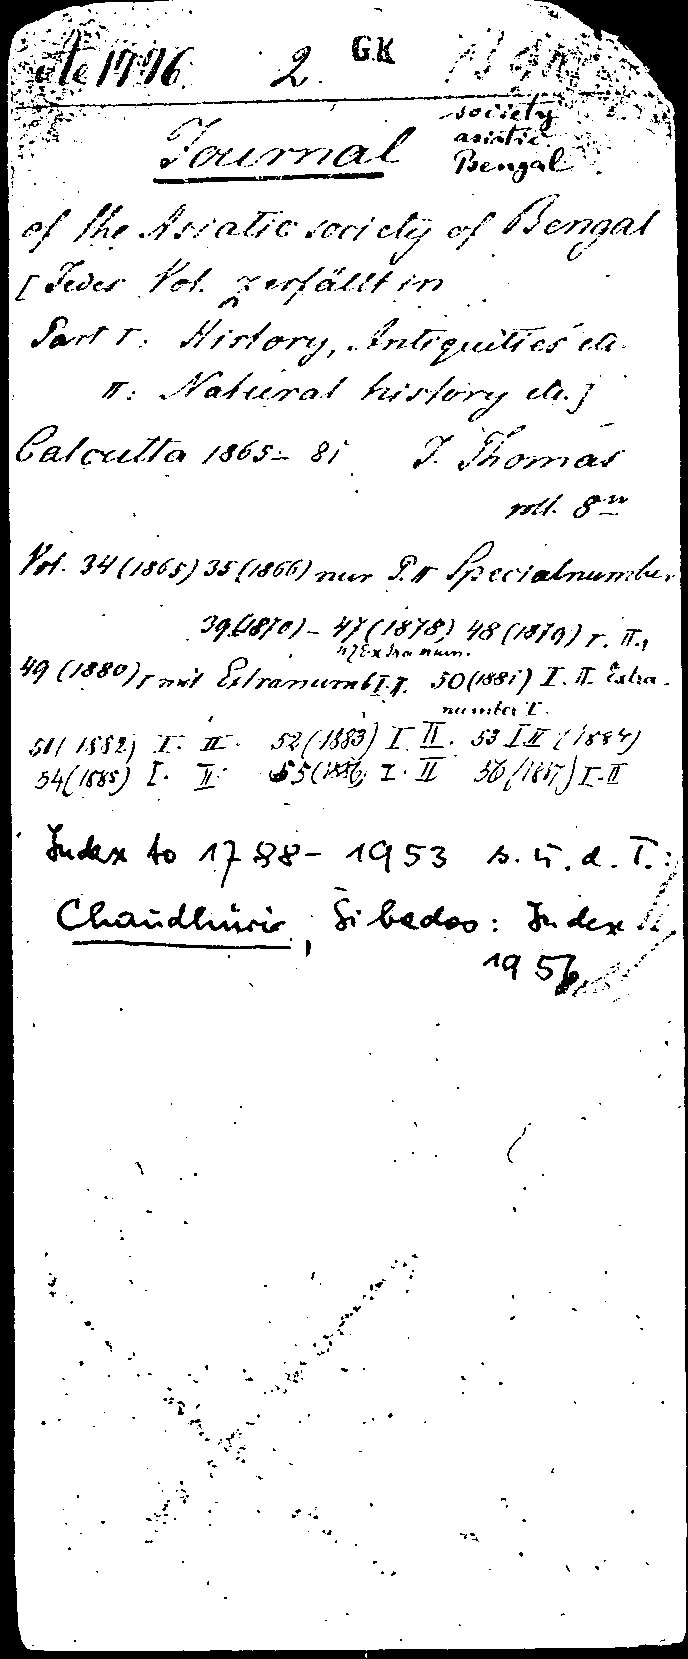 1776 2 GK
society
asiatic
Bengal
Journal
of the Asiatic society of Bengal
[Jeder Vol. zerfällt in
Part I: History, Antiquities etc.
II: Natural history etc.]
Calcutta 1865-81 J. Thomas
8
Vol. 34 (1865) 35 (1866) nur P. II Specialnumber
39 (1870) - 47 (1878) 48 (1879) I. II.,
47 Extranum.
49 (1880) I mit Extranumb I. II. 50 (1881) I. II. Extra-
number I.
51 (1882) I. II. 52 (1883) I II. 53 I II (1884)
54 (1885) I. II. 55 (1886) I. II 56 (1887) I-II
Index to 1788-1953 s. u. d. T.:
Chaudhuri, Sibadas: Index
1956